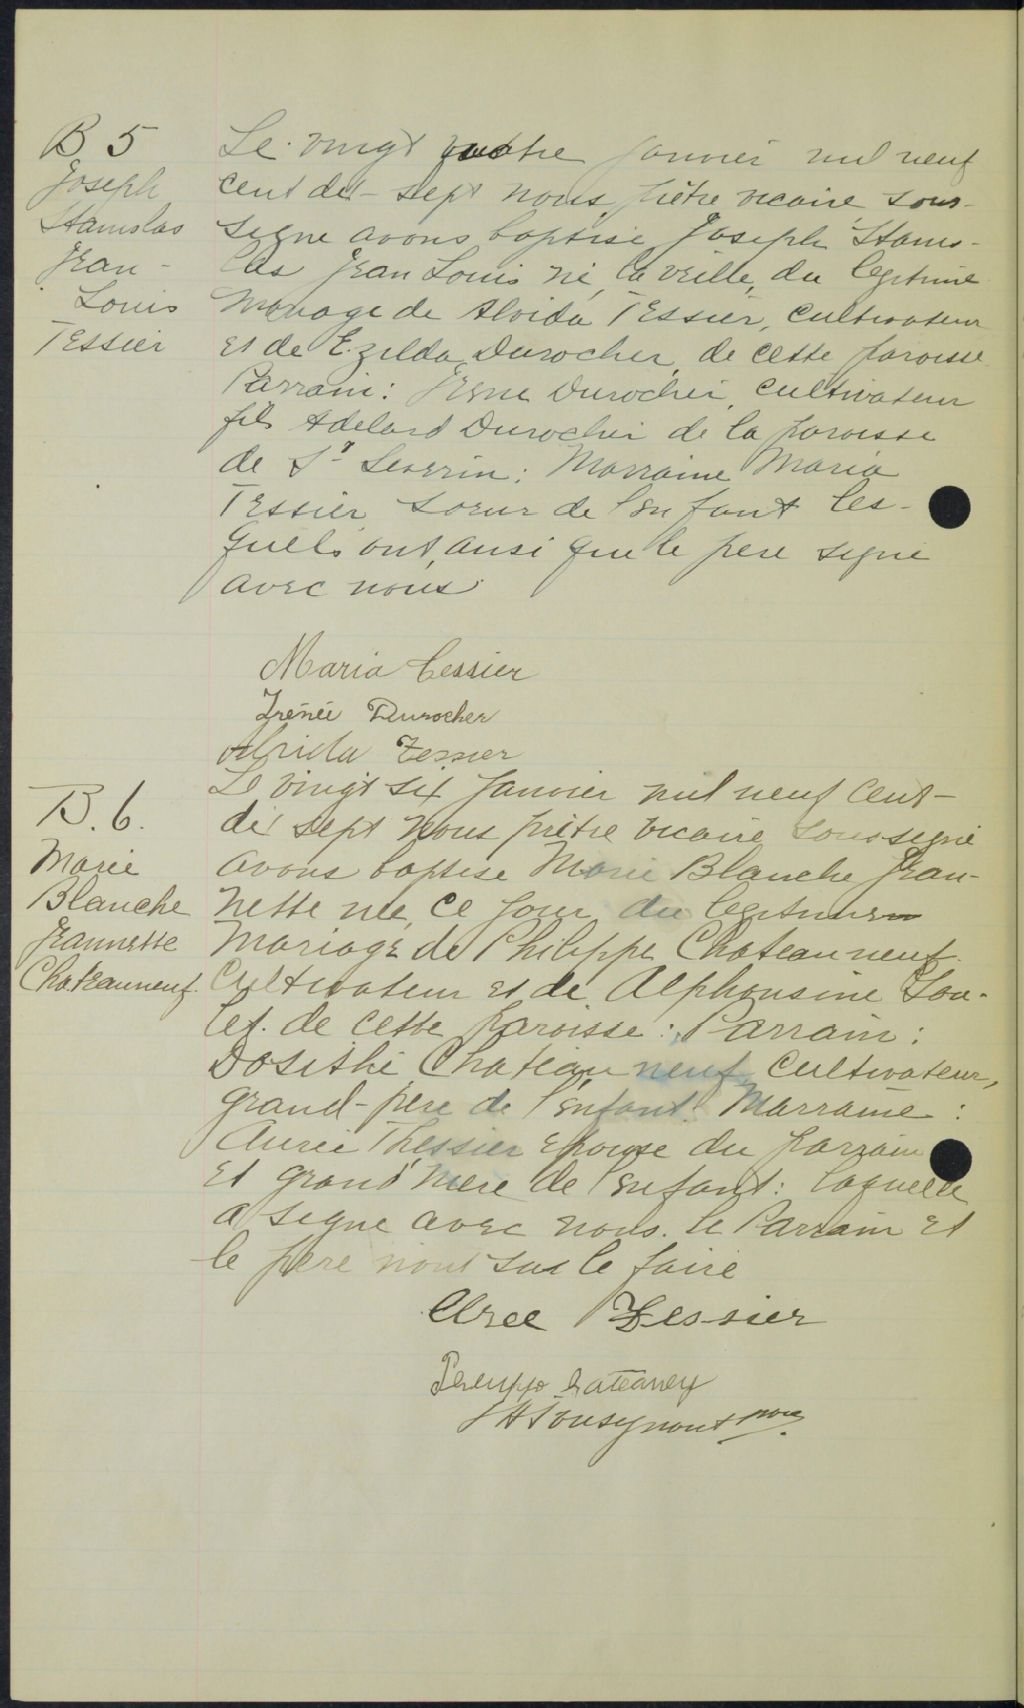 B 5
Joseph
Stanislas
Jean -
Louis
Tessier
Le vingt quatre janvier mil neuf
cent dix-sept nous, prêtre vicaire sous-
signé avons baptisé Joseph Stanis-
las Jean Louis né, la veille, du légitime
mariage de Alvida Tessier, cultivateur
et de Ezilda Durocher, de cette paroisse
Parrain: Irené Durocher, cultivateur
fils Adelard Durocher de la paroisse
de St Severin: Marraine Maria
Tessier soeur de l'enfant les-
quels ont, ainsi que le père signé
avec nous.
Maria Tessier
Irénée Durocher
Alvida Tessier
B. 6.
Marie
Blanche
Jeannette
Chateauneuf.
Le vingt six janvier mil neuf cent-
dix sept nous prêtre vicaire soussigné
avons baptisé Marie Blanche Jean-
nette née, ce jour du légitime
mariage de Philippe Chateauneuf.
Cultivateur et de Alphonsine Lou-
let. de cette paroisse: Parrain:
Dosithé Chateau neuf cultivateur,
grand-père de l'enfant: Marraine:
Auree Thessier épouse du parrain
et grand'mère de l'enfant: laquelle
a signé avec nous. le Parrain et
le père n'ont su le faire
Tessier